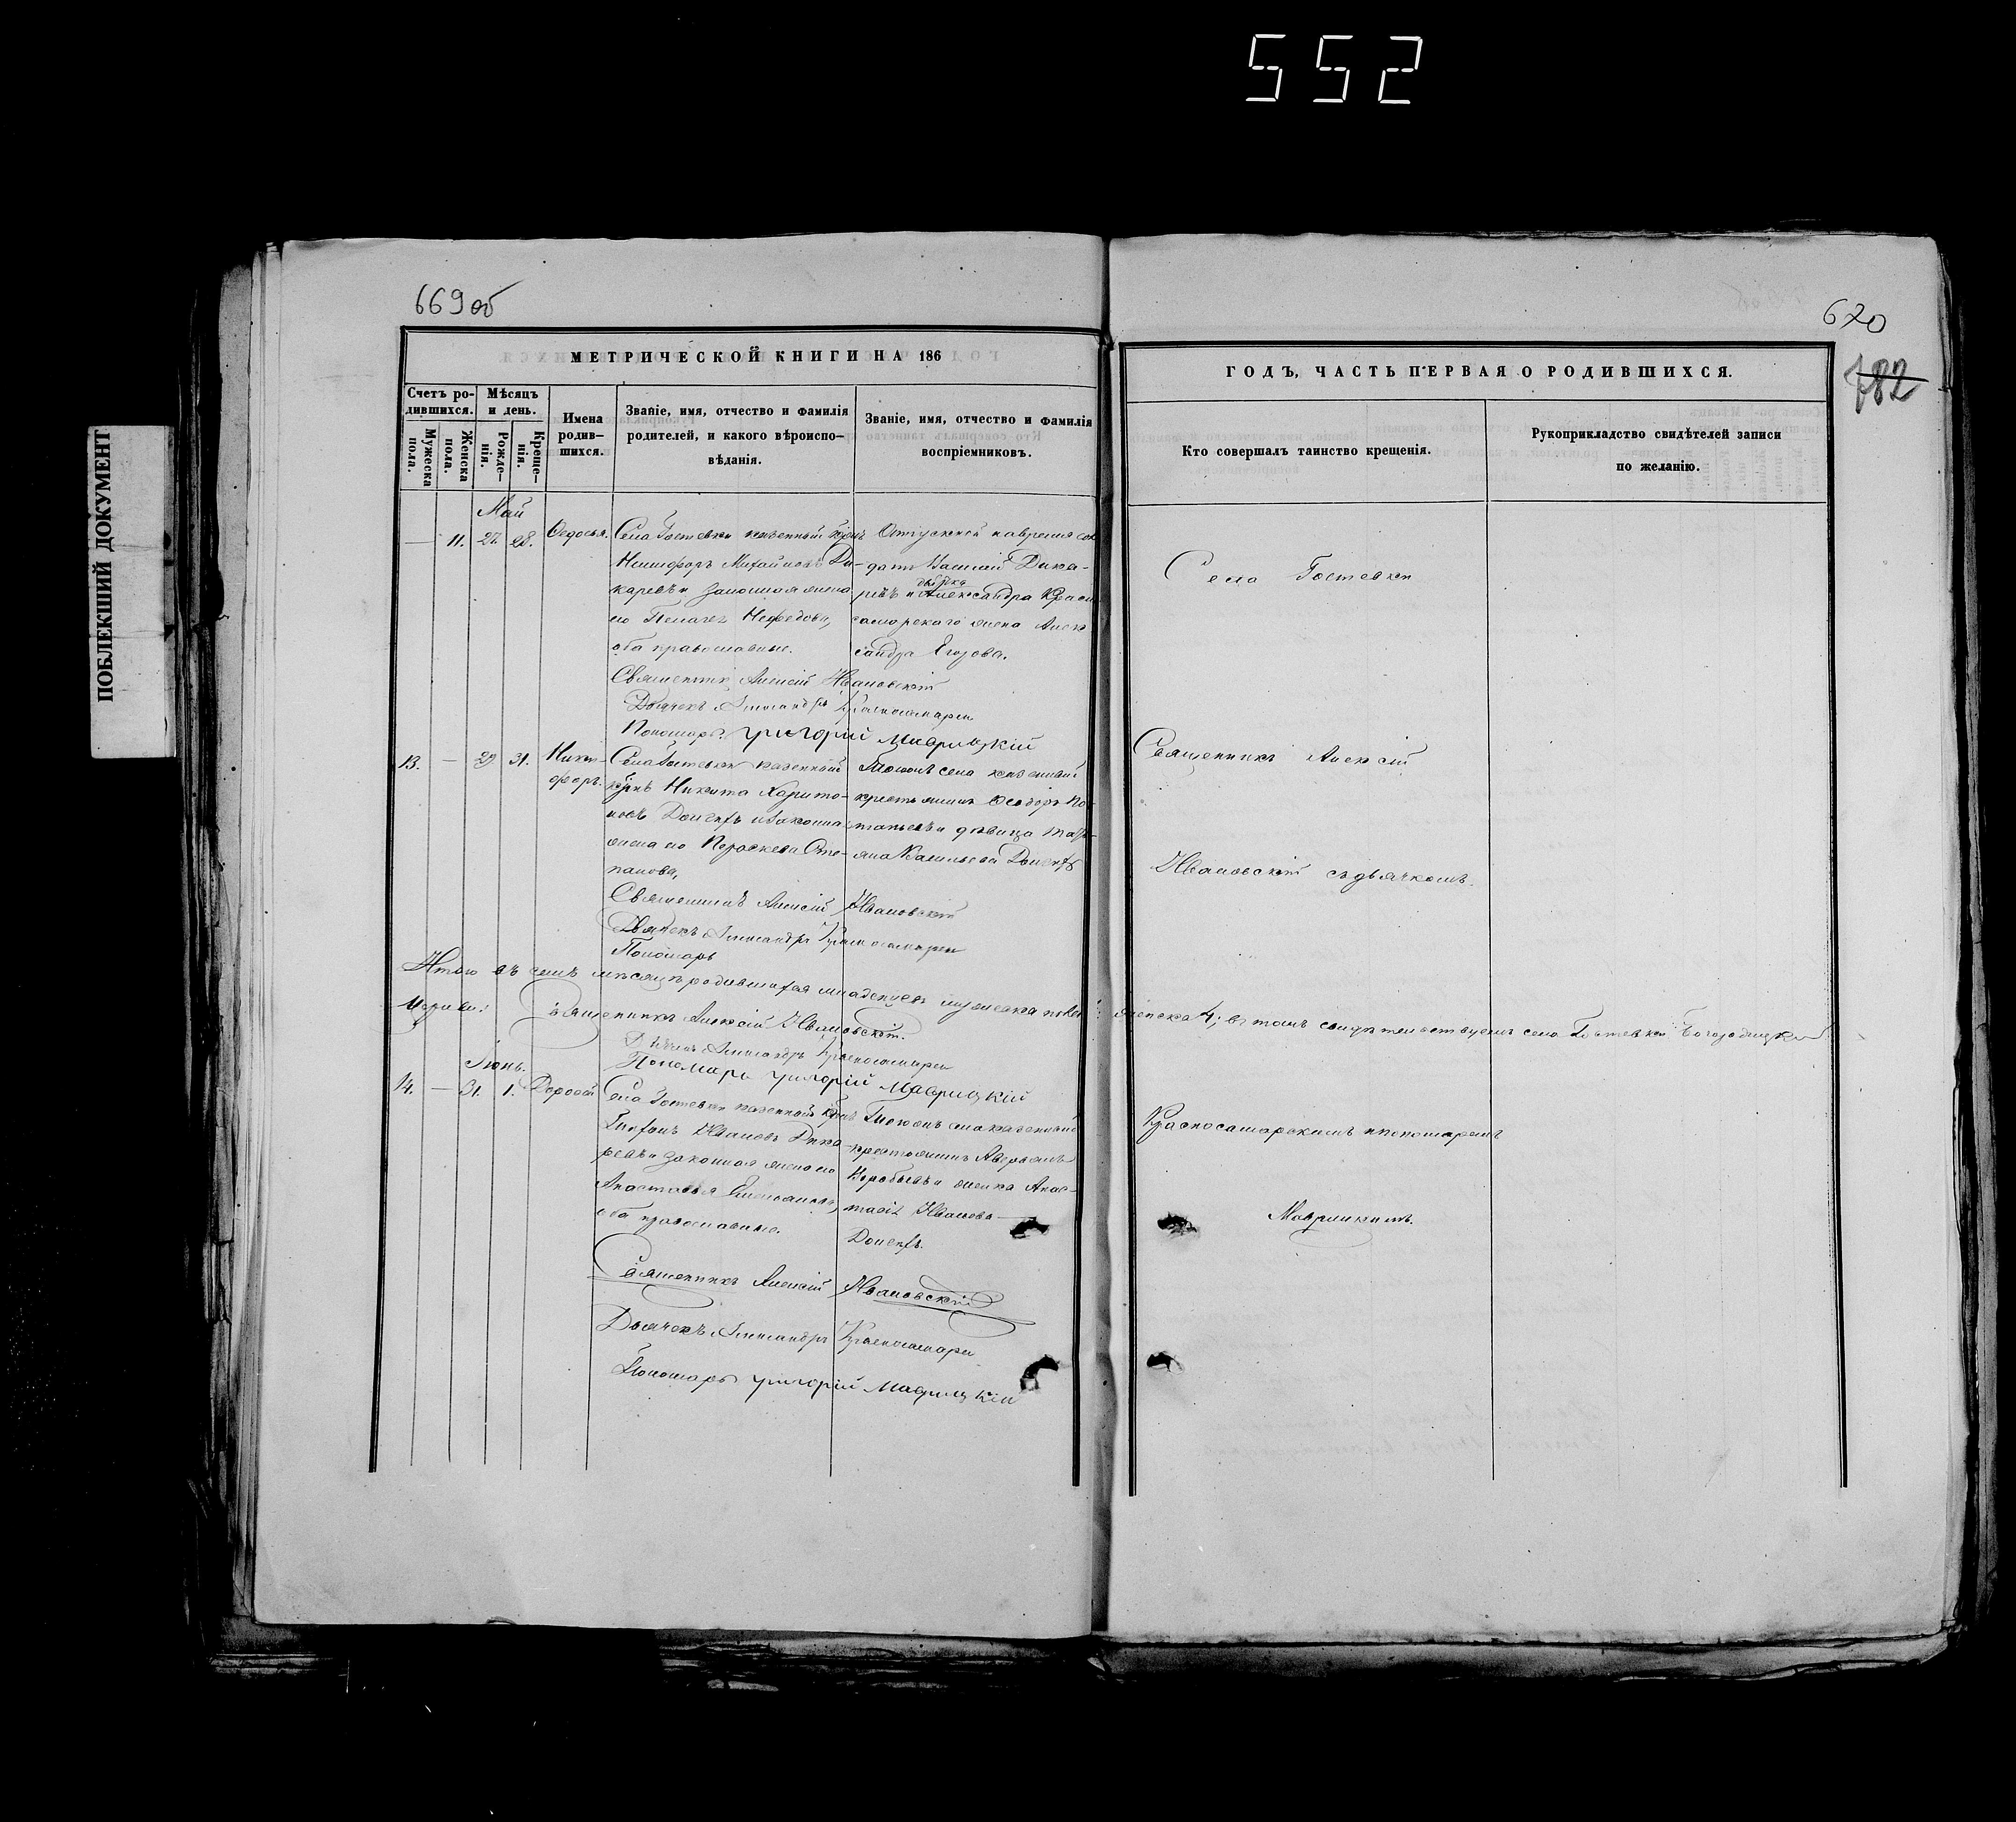 552
ПОБЛЕКШИЙ ДОКУМЕНТ
669 об
МЕТРИЧЕСКОЙ КНИГИ НА 186
Счетъ родившихся.
Мужеска пола.
Женска пола.
Мѣсяцъ и день.
Рожде-
нія.
Креще-
нія.
Имена
родив-
шихся.
Званіе, имя, отчество и фамилія
родителей, и какого вѣроиспо-
вѣданія.
Званіе, имя, отчество и фамилія
воспріемниковъ.
Май
— 11. 27. 28. Ѳедосья.
Села Гостевки казенный
Никифоръ Михайловъ Ди-
каревъ и законная жена
его Пелагея Нефедова,
оба православные.
Василій Дика-
ревъ и Александра Красно-
самарскаго жена Алек
сандра Егорова.
Священникъ Алексій Ивановскій
Дьячекъ Александръ Красносамарскій
Пономарь Григорій Маврицкій
13. — 29 31. Ники-
форъ.
Села Гостевки казенный
Никита Харито-
новъ Донецъ и законная
жена его Параскева Сте-
панова,
села казенный
крестьянинъ Ѳеодоръ По-
таповъ и дѣвица Тать-
яна Васильева Донецъ
Священникъ Алексій Ивановскій
Дьячекъ Александръ Красносамарскій
Пономарь
Итого въ семъ мѣсяцѣ родившихся младенцевъ мужеска пола
Священникъ Алексій Ивановскій.
Дьячекъ Александръ Красносамарскій
Пономарь Григорій Маврицкій
Іюнь.
14. — 31. 1. Дороѳей
Села Гостевки казенный
Ивановъ Дика-
ревъ и законная жена его
Анастасья
оба православные.
села казенный
крестьянинъ Аверьянъ
Воробьевъ и женка Анас-
тасія Иванова
Донецъ.
Священникъ Алексій Ивановскій
Дьячекъ Александръ Красносамарскій
Пономарь Григорій Маврицкій
670
782
ГОДЪ, ЧАСТЬ ПЕРВАЯ О РОДИВШИХСЯ.
Кто совершалъ таинство крещенія.
Рукоприкладство свидѣтелей записи
по желанію.
Села Гостевки
Священникъ Алексій
Ивановскій съ дьячкомъ
женска 4; въ томъ свидѣтельствуемъ села Гостевки Богородицкой
Красносамарскимъ и пономаремъ
Маврицкимъ.